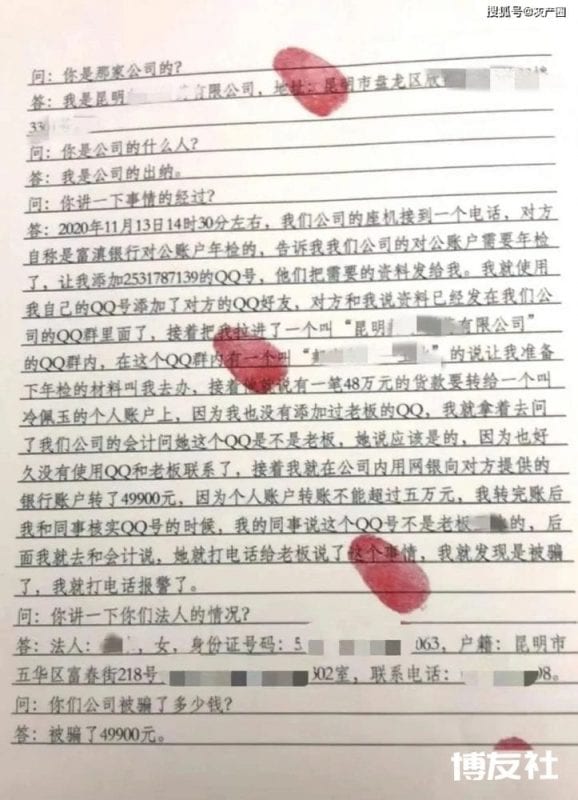 搜狐号@农产圈
问：你是那家公司的？
答：我是昆明 有限公司，地址：昆明市盘龙区欣
330
问：你是公司的什么人？
答：我是公司的出纳。
问：你讲一下事情的经过？
答：2020年11月13日14时30分左右，我们公司的座机接到一个电话，对方
自称是富滇银行对公账户年检的，告诉我我们公司的对公账户需要年检
了，让我添加2531787139的QQ号，他们把需要的资料发给我。我就使用
我自己的QQ号添加了对方的QQ好友，对方和我说资料已经发在我们公
司的QQ群里面了，接着把我拉进了一个叫“昆明 有限公司”
的QQ群内，在这个QQ群内有一个叫“ ”的说让我准备
下年检的材料叫我去办，接着他就说有一笔48万元的货款要转给一个叫
冷佩玉的个人账户上，因为我也没有添加过老板的QQ，我就拿着去问
了我们公司的会计问她这个QQ是不是老板，她说应该是的，因为也好
久没有使用QQ和老板联系了，接着我就在公司内用网银向对方提供的
银行账户转了49900元，因为个人账户转账不能超过五万元，我转完账后
我和同事核实QQ号的时候，我的同事说这个QQ号不是老板 的，后
面我就去和会计说，她就打电话给老板说了这个事情，我就发现是被骗
了，我就打电话报警了。
问：你讲一下你们法人的情况？
答：法人： ，女，身份证号码：5 063，户籍：昆明市
五华区富春街218号 302室，联系电话： 08。
问：你们公司被骗了多少钱？
答：被骗了49900元。
博友社